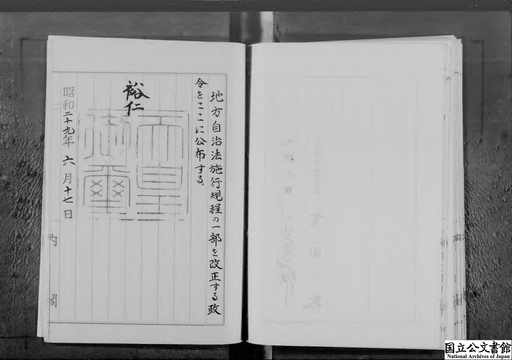 地方自治法施行規程の一部を改正する政
令をここに公布する。
裕仁
天皇
御璽
昭和二十九年六月十七日
内閣
国立公文書館
National Archives of Japan